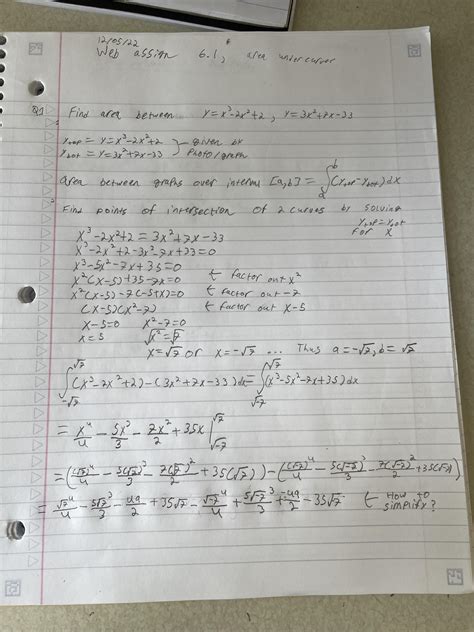 12/05/22
Web assign 6.1, area under curves
Q1 Find area between y=x³-2x²+2, y=3x²+7x-33
y_top = y=x³-2x²+2 } given by
y_bot = y=3x²+7x-33 photo/graph
area between graphs over interval [a,b] = ∫_a^b (y_top-y_bot)dx
Find points of intersection of 2 curves by solving
y_top=y_bot
for x
x³-2x²+2=3x²+7x-33
x³-2x²+2-3x²-7x+33=0
x³-5x²-7x+35=0
x²(x-5)+35-7x=0 ← factor out x²
x²(x-5)-7(-5+x)=0 ← factor out -7
(x-5)(x²-7) ← factor out x-5
x-5=0 x²-7=0
x=5 √x²=√7
x=√7 or x=-√7 ... Thus a=-√7, b=√7
∫_-√7^√7 (x³-2x²+2)-(3x²+7x-33)dx=∫_-√7^√7 (x³-5x²-7x+35)dx
= x⁴/4 - 5x³/3 - 7x²/2 + 35x |
=((√7)⁴/4 - 5(√7)³/3 - 7(√7)²/2 + 35(√7))-(
= √7⁴/4 - 5√7³/3 - 49/2 + 35√7 - ← How to
simplify?